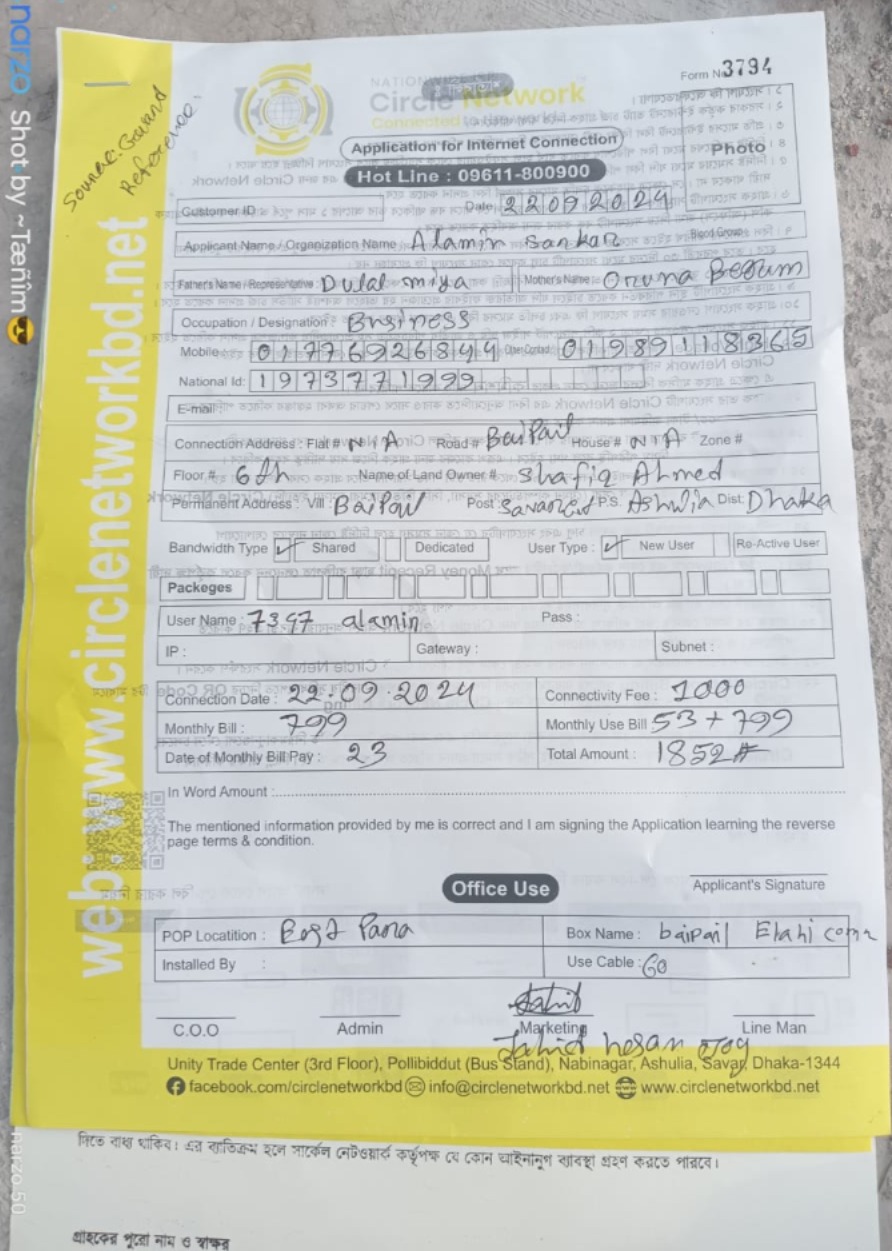 narzo Shot by ~Tæñîm😎
Source: Ground
Reference.
web: www.circlenetworkbd.net
Form No 3794
NATIONWIDE
Circle Network
Connected
Application for Internet Connection
Photo
Hot Line : 09611-800900
Customer ID
Date: 22092024
Applicant Name / Organization Name : Alamin Sarkar Blood Group :
Father's Name / Representative : Dulal miya Mother's Name : Oruna Begum
Occupation / Designation : Business
Mobile : 01776926844 Other Contact : 01989118365
National Id: 1973771999
E-mail
Connection Address : Flat # N/A Road # BaiPail House # N/A Zone #
Floor # 6th Name of Land Owner # Shafiq Ahmed
Permanent Address : Vill : BaiPail Post : P.S. Ashulia Dist: Dhaka
Bandwidth Type ✓ Shared Dedicated User Type : ✓ New User Re-Active User
Packeges
User Name : 7397 alamin Pass :
IP : Gateway : Subnet :
Connection Date : 22.09.2024 Connectivity Fee : 1000
Monthly Bill : 799 Monthly Use Bill 53 + 799
Date of Monthly Bill Pay : 23 Total Amount : 1852#
In Word Amount :
The mentioned information provided by me is correct and I am signing the Application learning the reverse
page terms & condition.
Office Use
Applicant's Signature
POP Locatition : Para Box Name : baipail Elahi
Installed By : Use Cable : 60
C.O.O Admin Marketing Line Man
Jahid hasan
Unity Trade Center (3rd Floor), Pollibiddut (Bus Stand), Nabinagar, Ashulia, Savar, Dhaka-1344
facebook.com/circlenetworkbd info@circlenetworkbd.net www.circlenetworkbd.net
narzo 50
দিতে বাধ্য থাকিব। এর ব্যতিক্রম হলে সার্কেল নেটওয়ার্ক কর্তৃপক্ষ যে কোন আইনানুগ ব্যবস্থা গ্রহণ করতে পারবে।
গ্রাহকের পুরো নাম ও স্বাক্ষর